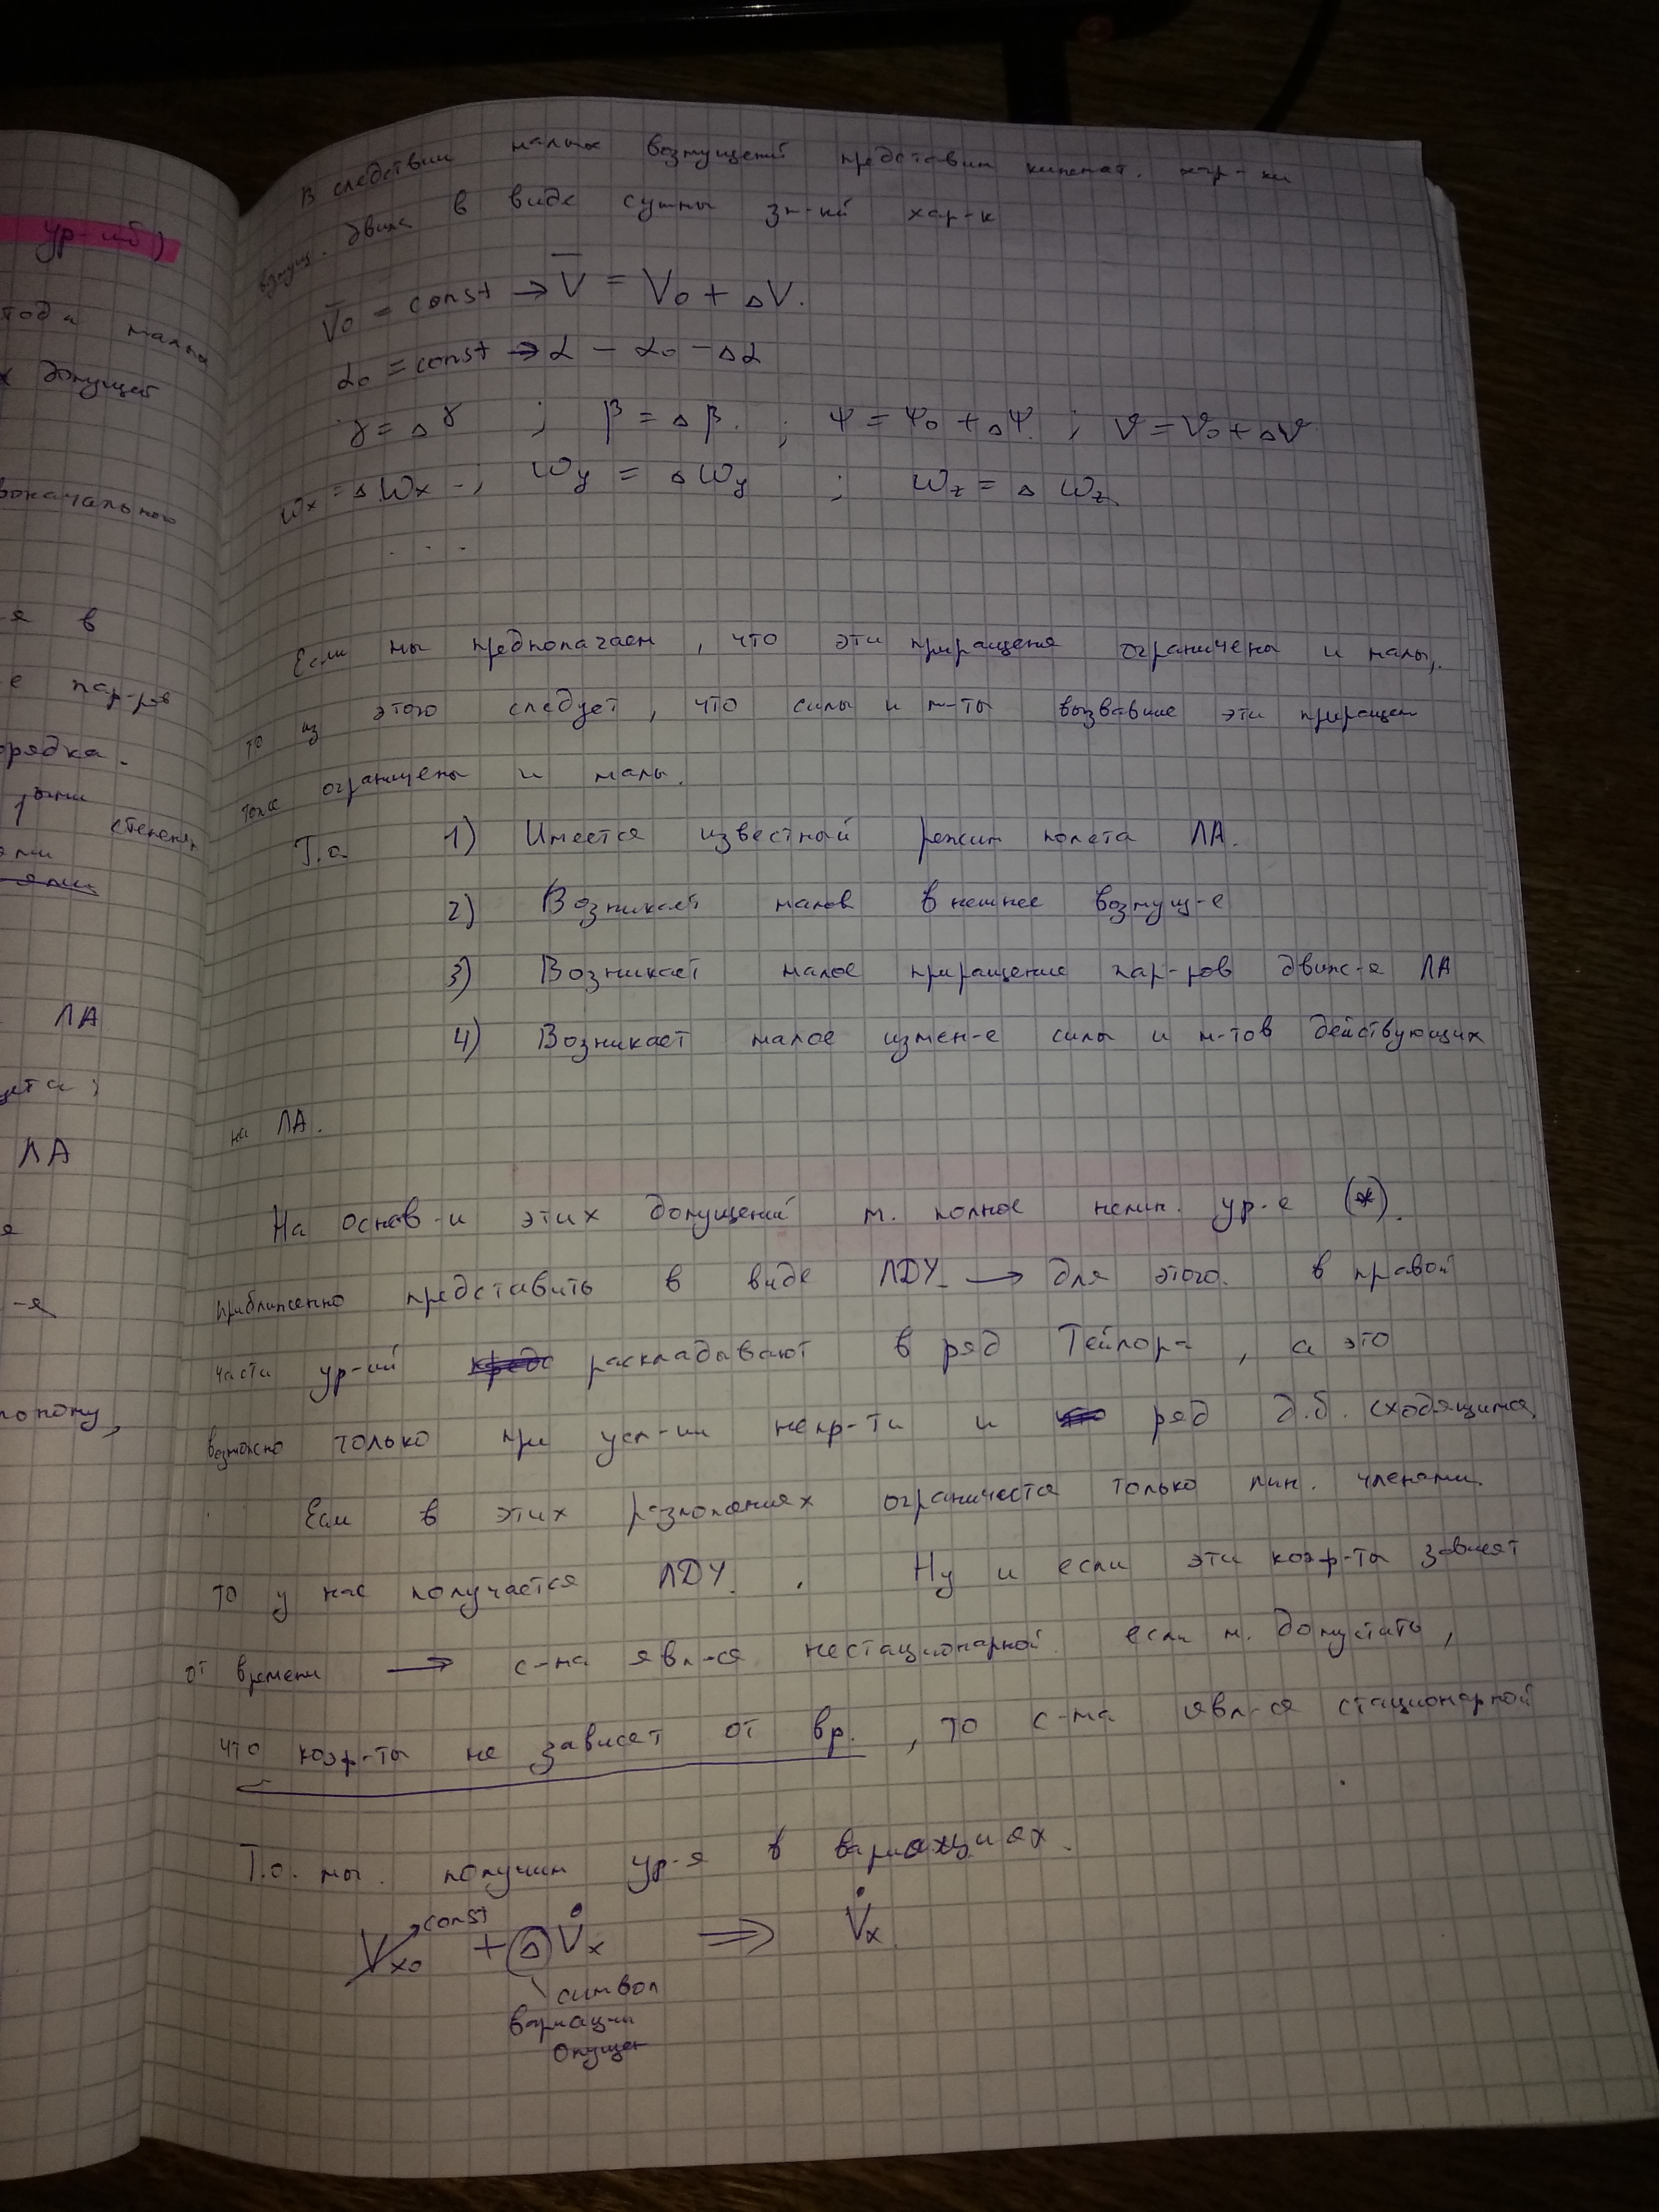 ур-ий)
тода малых
х допущей
воначального
-я в
е пар-ров
орядка.
степеня
ЛА
ета;
ЛА
я
-я
В следствии малых возмущений представим кинемат. хар-ки
возмущ. движ в виде суммы зн-ий хар-к
V̅₀ = const → V̅ = V₀ + ΔV.
α₀ = const → α – α₀ – Δα
γ = Δγ ; β = Δβ. ; ψ = ψ₀ + Δψ. ; ϑ = ϑ₀ + Δϑ
ωx = Δωx ; ωy = Δωy ; ωz = Δωz
. . .
Если мы предполагаем, что эти приращения ограничены и малы,
то из этого следует, что силы и м-ты вызвавшие эти приращен
тоже ограничены и малы.
Т.о. 1) Имеется известный режим полета ЛА.
2) Возникает малое внешнее возмущ-е
3) Возникает малое приращение пар-ров движ-я ЛА
4) Возникает малое измен-е силы и м-тов действующих
на ЛА.
На основ-и этих допущений м. полное нелин. ур-е (*).
приближенно представить в виде ЛДУ. → для этого. в правой
части ур-ий раскладывают в ряд Тейлора, а это
возможно только при усл-ии непр-ти и ряд д.б. сходящимся
Если в этих разложениях ограничется только лин. членами
то у нас получается ЛДУ. . Ну и если эти коэф-ты зависят
от времени → с-ма явл-ся нестационарной. если м. допустить,
что коэф-ты не зависят от вр., то с-ма явл-ся стационарной
Т.о. мы. получим ур-я в вариациях.
const
Vx₀ + ΔV̇x ⇒ V̇x
символ
вариации
опущен